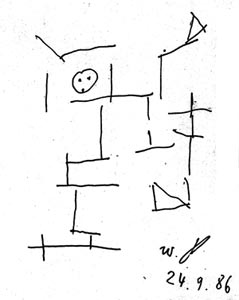 W.
24.9.86